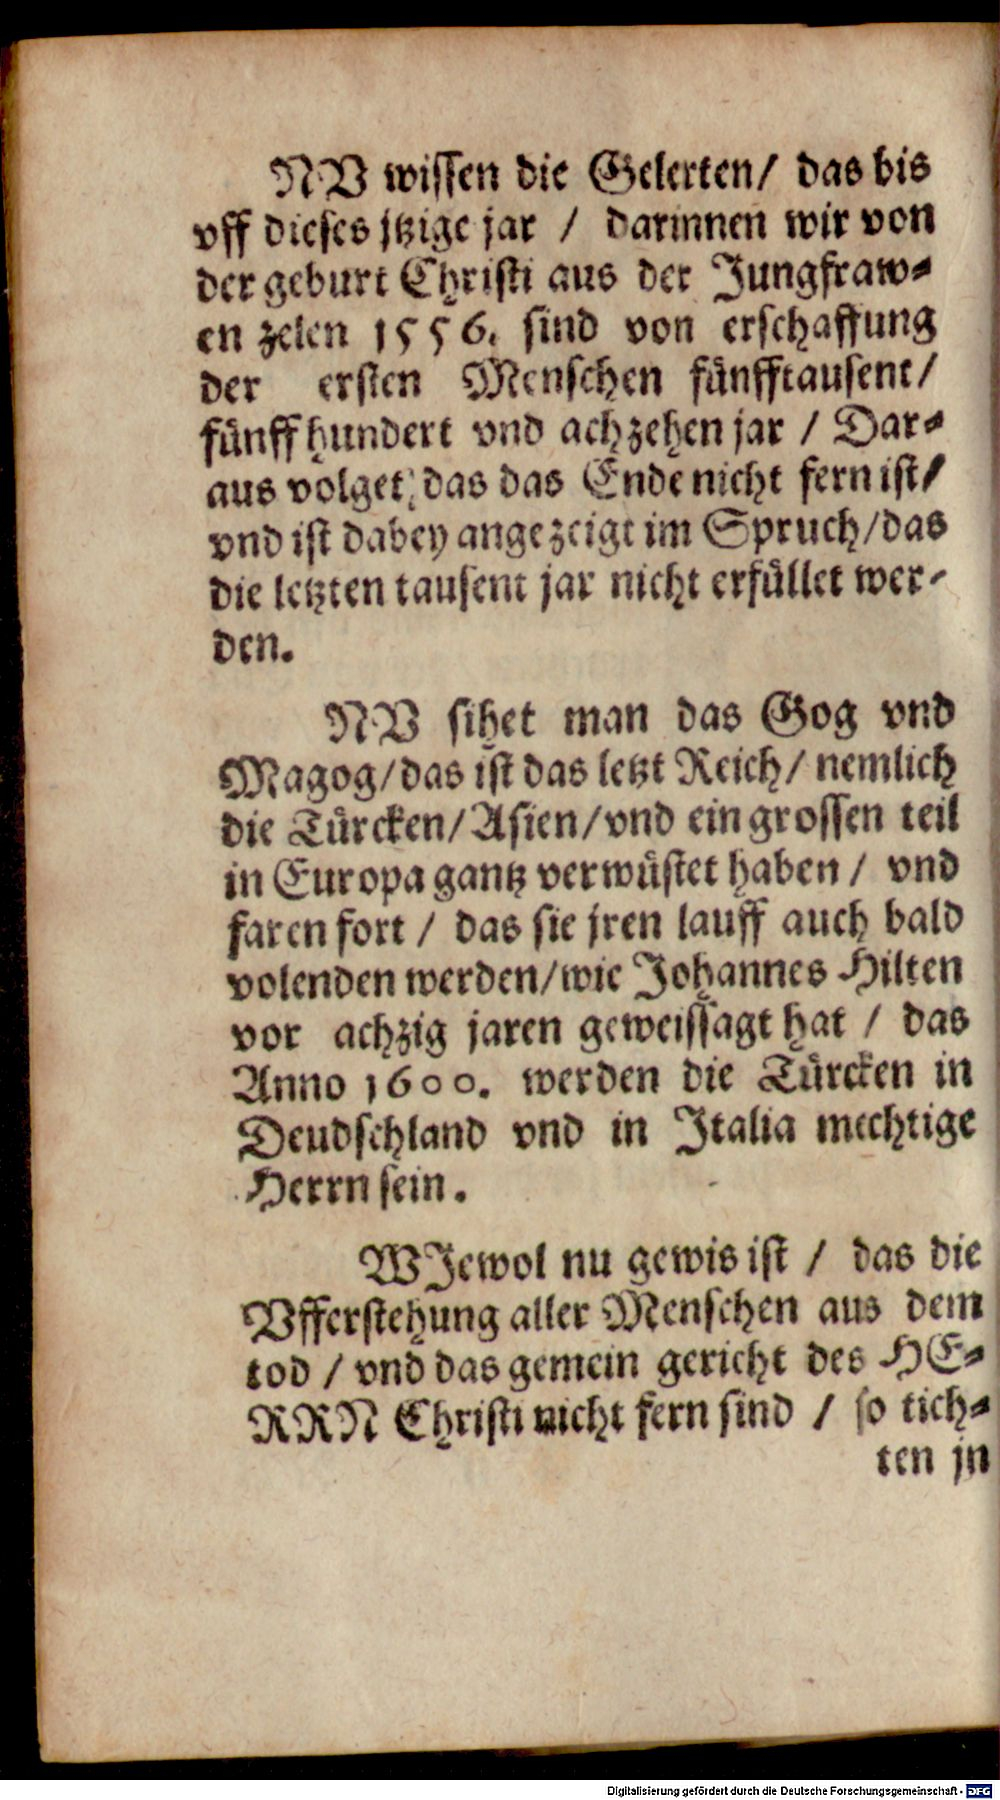 NV wissen die Gelerten/ das bis
vff dieses jtzige jar / darinnen wir von
der geburt Christi aus der Jungfraw⸗
en zelen 1556. sind von erschaffung
der ersten Menschen fünfftausent/
fünff hundert vnd achzehen jar / Dar⸗
aus volget, das das Ende nicht fern ist/
vnd ist dabey angezeigt im Spruch/das
die letzten tausent jar nicht erfüllet wer⸗
den.
NV sihet man das Gog vnd
Magog/das ist das letzt Reich/ nemlich
die Türcken/Asien/vnd ein grossen teil
in Europa gantz verwüstet haben / vnd
faren fort / das sie jren lauff auch bald
volenden werden/wie Johannes Hilten
vor achzig jaren geweissagt hat / das
Anno 1600. werden die Türcken in
Deudschland vnd in Italia mechtige
Herrn sein.
WJewol nu gewis ist / das die
Vfferstehung aller Menschen aus dem
tod / vnd das gemein gericht des HE⸗
RRN Christi nicht fern sind / so tich⸗
ten jn
Digitalisierung gefördert durch die Deutsche Forschungsgemeinschaft - DFG